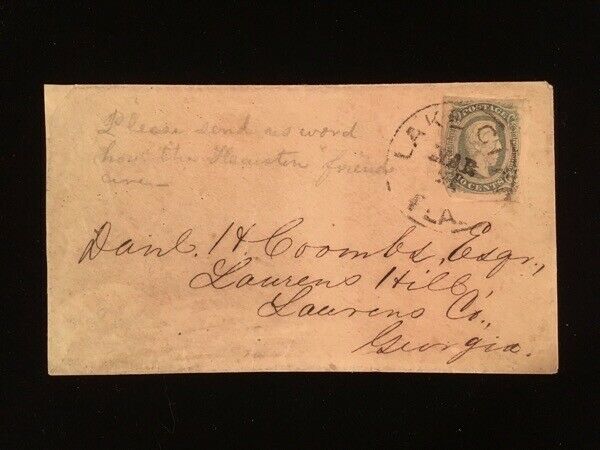 Please send us word
how the Houston friends
are
LAKE CI
MAR
FLA
POSTAGE
TEN CENTS
Danl. H. Coombs, Esqr.,
Laurens Hill,
Laurens Co.,
Georgia.